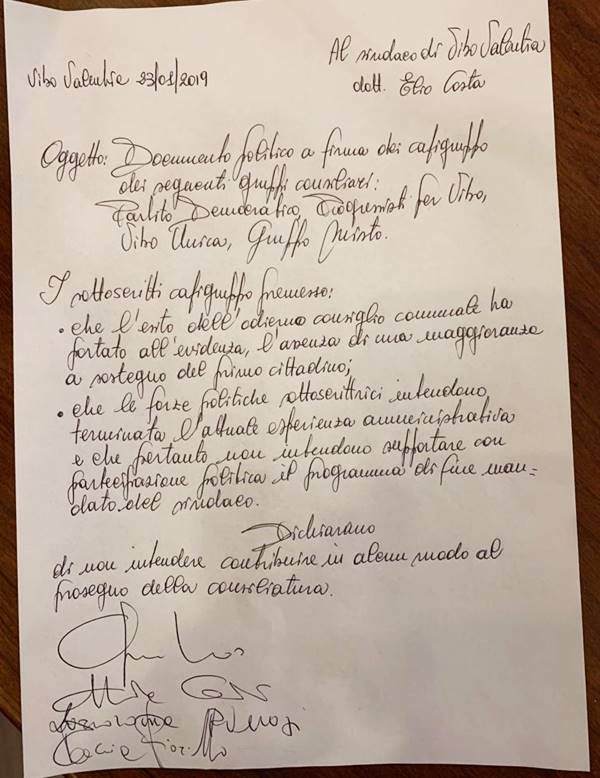 Al sindaco di Vibo Valentia
Vibo Valentia 23/01/2019
dott. Elio Costa
Oggetto: Documento politico a firma dei capigruppo
dei seguenti gruppi consiliari:
Partito Democratico, Progressisti per Vibo,
Vibo Unica, Gruppo Misto.
I sottoscritti capigruppo premesso:
• che l'esito dell'odierno consiglio comunale ha
portato all'evidenza, l'assenza di una maggioranza
a sostegno del primo cittadino;
• che le forze politiche sottoscrittrici intendono
terminata l'attuale esperienza amministrativa
e che pertanto non intendono supportare con
partecipazione politica il programma di fine man=
dato del sindaco.
Dichiarano
di non intendere contribuire in alcun modo al
prosegno della consiliatura.